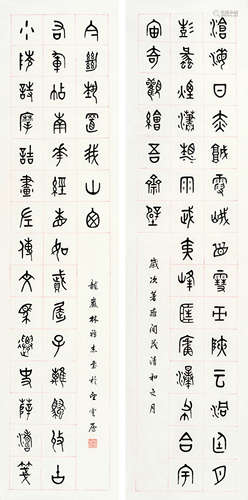 滄海日赤城霞峨眉雪巫峽雲洞庭月
彭蠡煙瀟湘雨武夷峰匡廬瀑布合宇
宙奇觀繪吾齋壁
歲次著雍閹茂清和之月
少陵詩摩詰畫左傳文馬遷史薛濤箋
右軍帖南華經相如賦屈子離騷收古
今絕藝置我山窗
龍巖林書於雲